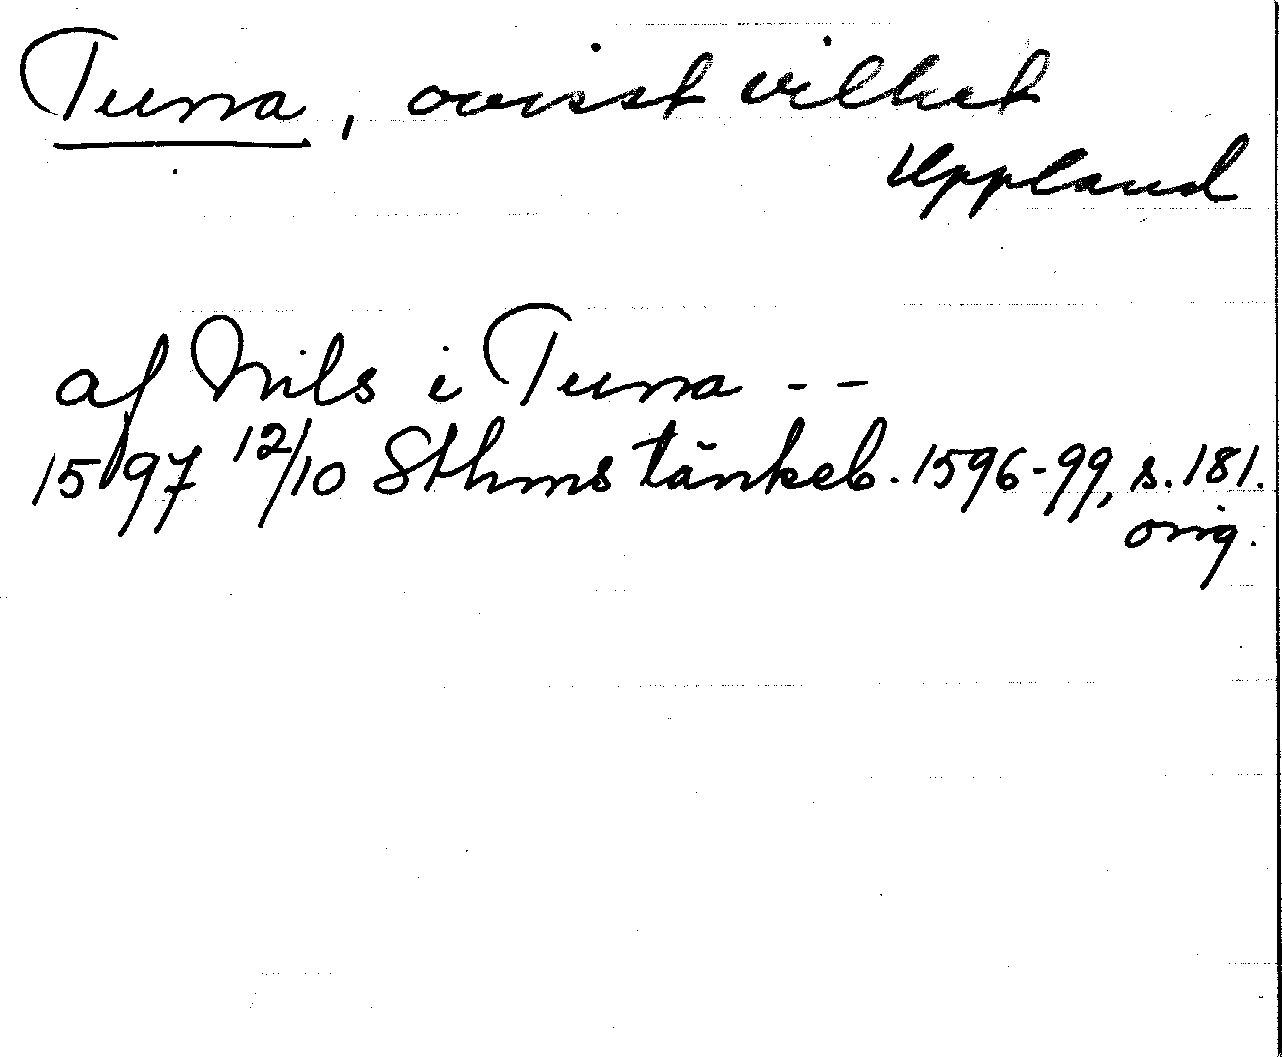 Tuna, ovisst vilket
Uppland
af Nils i Tuna - -
1597 12/10 Sthms tänkeb. 1596-99, s. 181.
orig.